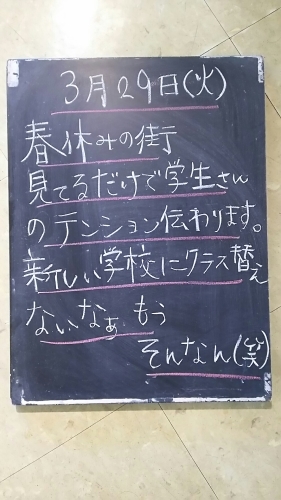 3月29日(火)
春休みの街
見てるだけで学生さん
のテンション伝わります。
新しい学校にクラス替え
ないなぁ もう
そんなん(笑)